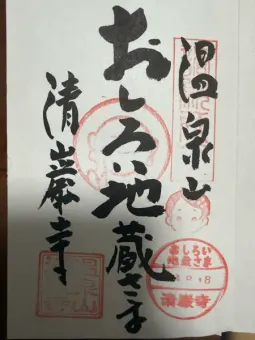 温泉山
おしろい地蔵さま
清巌寺
おしろい
地蔵さま
清巌寺